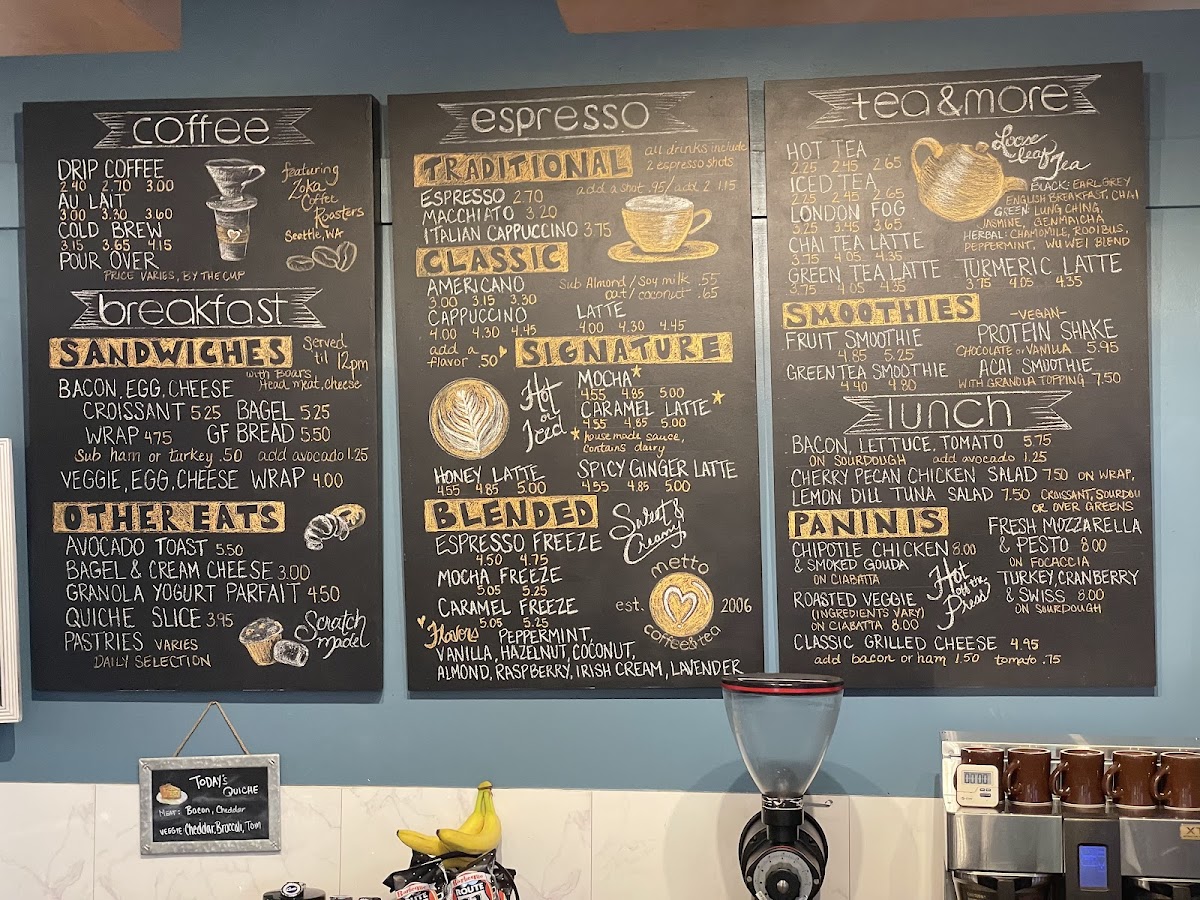 coffee
DRIP COFFEE
2.40 2.70 3.00
AU LAIT
3.00 3.30 3.60
COLD BREW
3.15 3.65 4.15
POUR OVER
PRICE VARIES, BY THE CUP
featuring
Zoka
Coffee
Roasters
Seattle, WA
breakfast
SANDWICHES
Served
'til 12pm
with Boars
Head meat, cheese
BACON, EGG, CHEESE
CROISSANT 5.25 BAGEL 5.25
WRAP 4.75 GF BREAD 5.50
Sub ham or turkey .50 add avocado 1.25
VEGGIE, EGG, CHEESE WRAP 4.00
OTHER EATS
AVOCADO TOAST 5.50
BAGEL & CREAM CHEESE 3.00
GRANOLA YOGURT PARFAIT 4.50
QUICHE SLICE 3.95
PASTRIES VARIES
DAILY SELECTION
Scratch
made!
espresso
TRADITIONAL
all drinks include
2 espresso shots
ESPRESSO 2.70
add a shot .95/add 2 1.15
MACCHIATO 3.20
ITALIAN CAPPUCCINO 3.75
CLASSIC
AMERICANO
3.00 3.15 3.30
Sub Almond/Soy milk .55
oat/coconut .65
CAPPUCCINO
4.00 4.30 4.45
LATTE
4.00 4.30 4.45
add a
flavor .50
SIGNATURE
Hot
or
Iced
MOCHA*
4.55 4.85 5.00
CARAMEL LATTE*
4.55 4.85 5.00
*house made sauce,
contains dairy
HONEY LATTE
4.55 4.85 5.00
SPICY GINGER LATTE
4.55 4.85 5.00
BLENDED
Sweet &
Creamy
ESPRESSO FREEZE
4.50 4.75
MOCHA FREEZE
5.05 5.25
CARAMEL FREEZE
5.05 5.25
metto
est. 2006
coffee&tea
Flavors PEPPERMINT,
VANILLA, HAZELNUT, COCONUT,
ALMOND, RASPBERRY, IRISH CREAM, LAVENDER
tea&more
HOT TEA
2.25 2.45 2.65
ICED TEA
2.25 2.45 2.65
LONDON FOG
3.25 3.45 3.65
CHAI TEA LATTE
3.75 4.05 4.35
GREEN TEA LATTE
3.75 4.05 4.35
Loose
leaf
Tea
BLACK: EARL GREY
ENGLISH BREAKFAST, CHAI
GREEN: LUNG CHING,
JASMINE, GENMAICHA
HERBAL: CHAMOMILE, ROOIBUS,
PEPPERMINT, WU WEI BLEND
TURMERIC LATTE
3.75 4.05 4.35
SMOOTHIES
FRUIT SMOOTHIE
4.85 5.25
GREEN TEA SMOOTHIE
4.40 4.80
-VEGAN-
PROTEIN SHAKE
CHOCOLATE or VANILLA 5.95
ACAI SMOOTHIE
WITH GRANOLA TOPPING 7.50
lunch
BACON, LETTUCE, TOMATO 5.75
ON SOURDOUGH add avocado 1.25
CHERRY PECAN CHICKEN SALAD 7.50 ON WRAP,
LEMON DILL TUNA SALAD 7.50 CROISSANT, SOURDOU
OR OVER GREENS
PANINIS
CHIPOTLE CHICKEN 8.00
& SMOKED GOUDA
ON CIABATTA
ROASTED VEGGIE
(INGREDIENTS VARY)
ON CIABATTA 8.00
Hot
off the
Press!
FRESH MOZZARELLA
& PESTO 8.00
ON FOCACCIA
TURKEY, CRANBERRY
& SWISS 8.00
ON SOURDOUGH
CLASSIC GRILLED CHEESE 4.95
add bacon or ham 1.50 tomato .75
TODAY'S
QUICHE
MEAT: Bacon, Cheddar
VEGGIE Cheddar, Broccoli, Tom
ROUTE
ROUTE
00:00